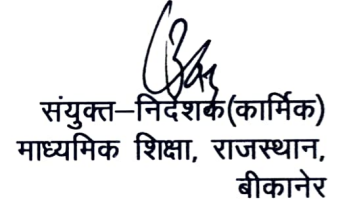 संयुक्त–निदेशक(कार्मिक)
माध्यमिक शिक्षा, राजस्थान,
बीकानेर